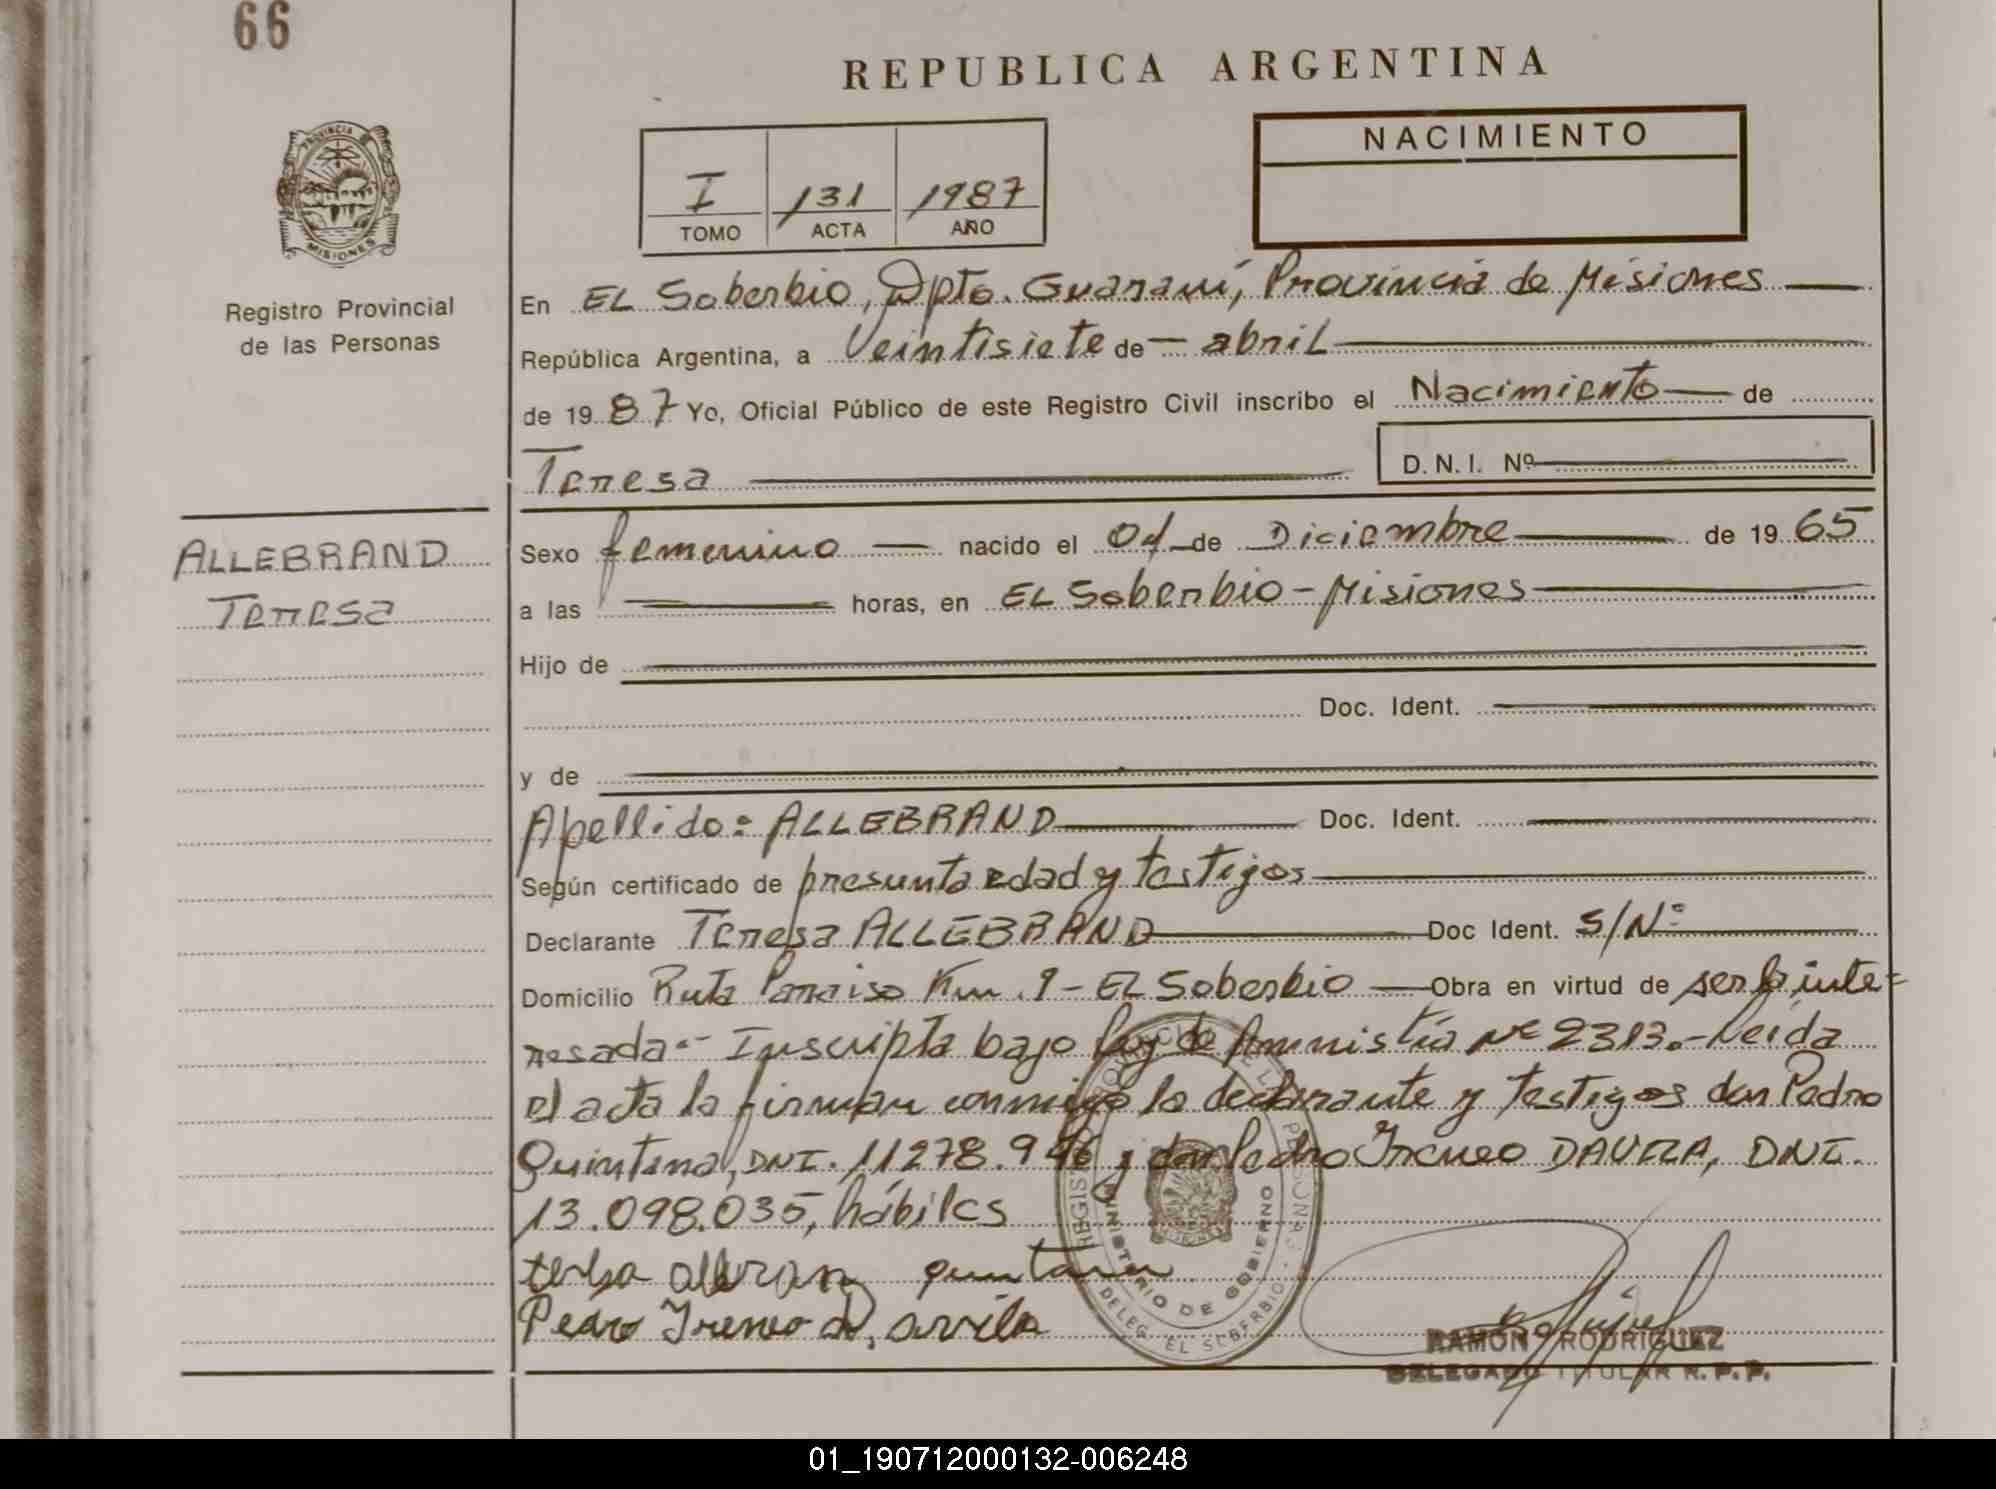 66
REPUBLICA ARGENTINA
PROVINCIA DE MISIONES
Registro Provincial
de las Personas
I 131 1987
TOMO ACTA AÑO
NACIMIENTO
En EL Soberbio, Dpto. Guaraní, Provincia de Misiones
República Argentina, a Veintisiete de abril
de 19 87 Yo, Oficial Público de este Registro Civil inscribo el Nacimiento de
Teresa D.N.I. Nº
ALLEBRAND
Teresa
Sexo femenino nacido el de Diciembre de 19 65
a las horas, en EL Soberbio - Misiones
Hijo de
Doc. Ident.
y de
Apellido: ALLEBRAND Doc. Ident.
Según certificado de presunta edad y testigos
Declarante Teresa ALLEBRAND Doc Ident. S/Nº
Domicilio Ruta Paraiso Km. 9 - EL Soberbio Obra en virtud de ser la inte=
resada.- Inscripta bajo Ley de Amnistía Nº 2313.- Leída
el acta la firman conmigo la declarante y testigos don Pedro
Quintana, DNI. 11278.946 y don Pedro Ireneo DAVILA, DNI.
13.098.035, hábiles
quintana
Pedro Ireneo d, avila
REGISTRO PROVINCIAL DE LAS PERSONAS
MINISTERIO DE GOBIERNO
DELEG. EL SOBERBIO
RAMON RODRIGUEZ
DELEGADO TITULAR R.P.P.
01_190712000132-006248